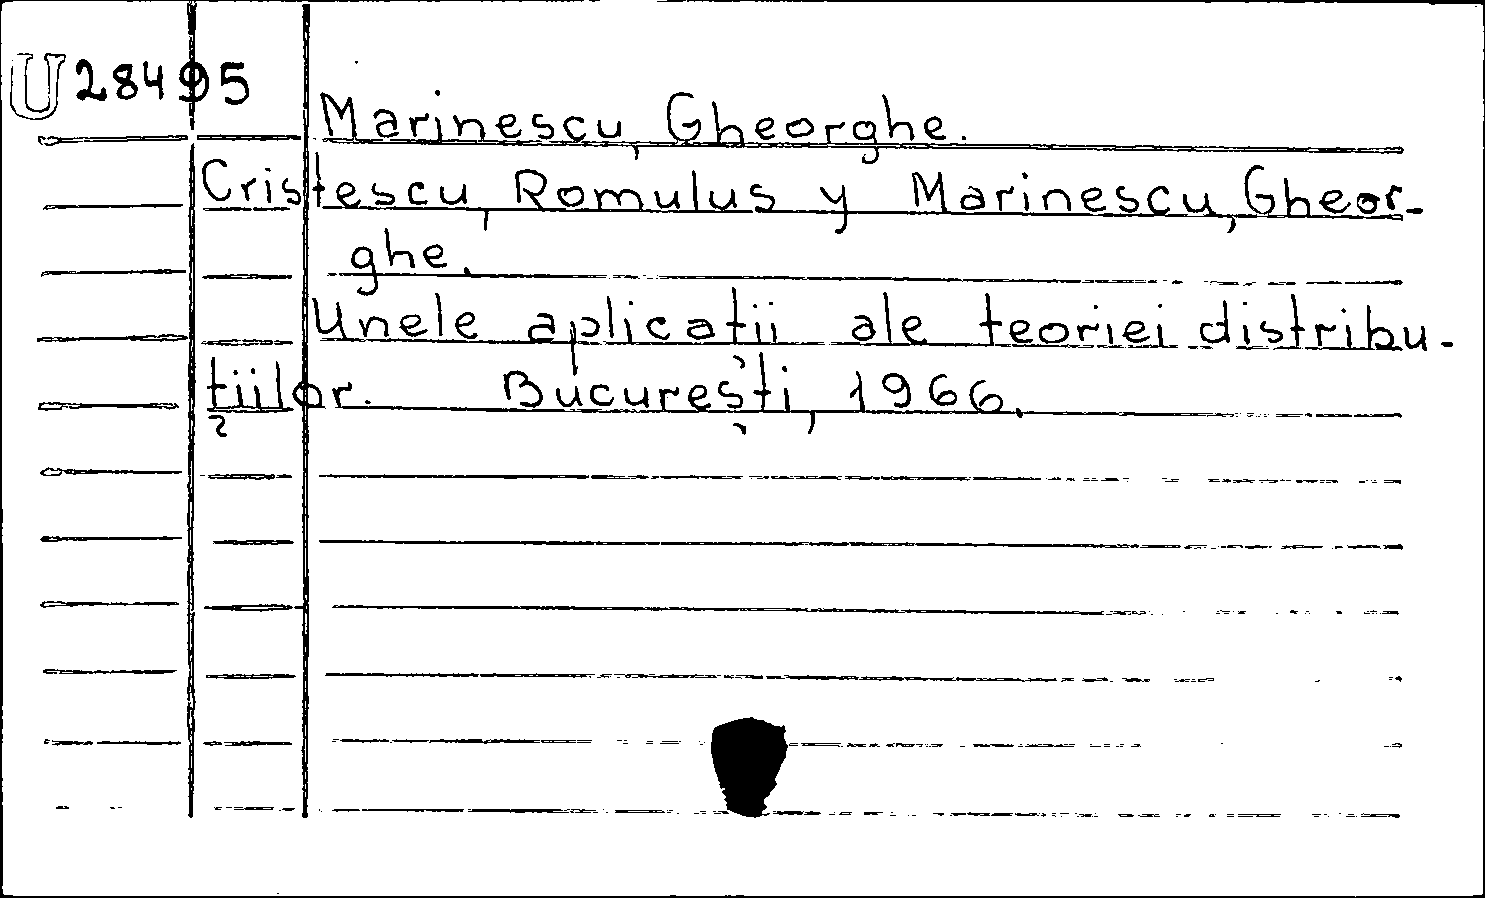 U28495
Marinescu, Gheorghe.
Cristescu, Romulus y Marinescu, Gheor-
ghe.
Unele aplicatii ale teoriei distribu-
țiilor. București, 1966.